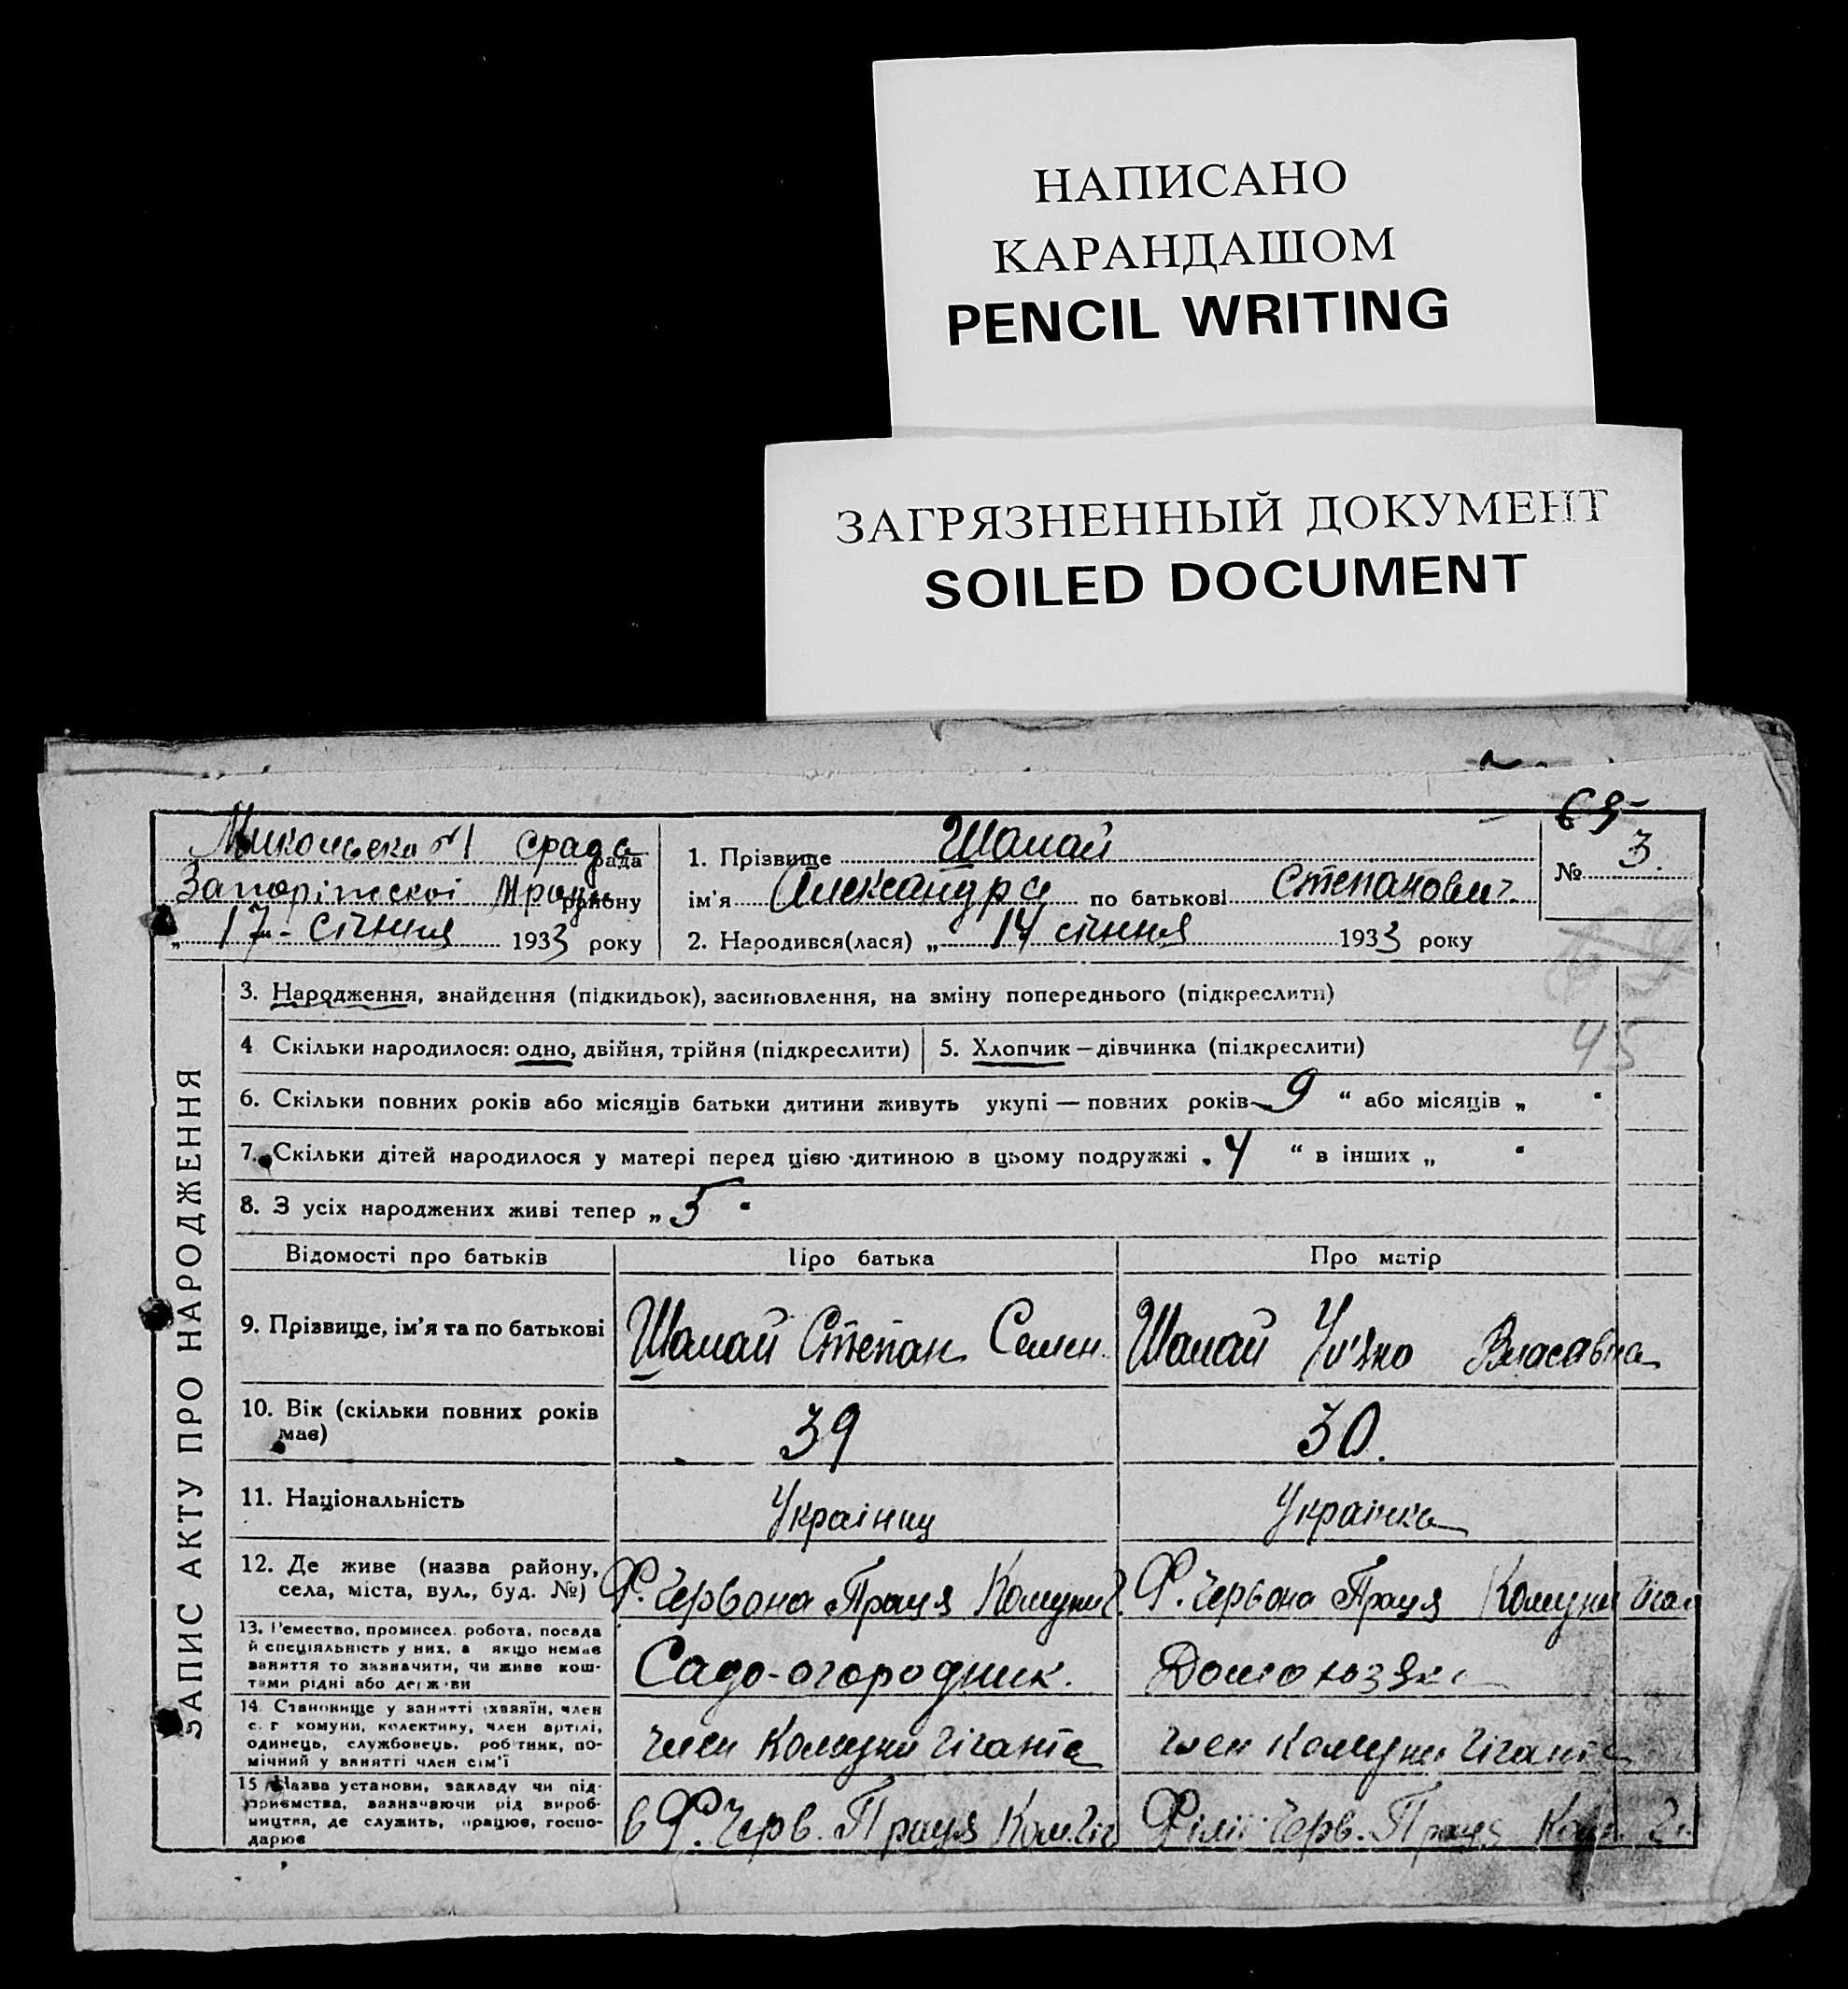 НАПИСАНО
КАРАНДАШОМ
PENCIL WRITING
ЗАГРЯЗНЕННЫЙ ДОКУМЕНТ
SOILED DOCUMENT
65
срада рада
району
„ 17 січння 1933 року
1. Прізвище Шамай
ім'я Александра по батькові Степанович.
2. Народився(лася) „ 14 січння 1933 року
№ 3.
45
ЗАПИС АКТУ ПРО НАРОДЖЕННЯ
3. Народження, знайдення (підкидьок), засиновлення, на зміну попереднього (підкреслити)
4 Скільки народилося: одно, двійня, трійня (підкреслити)
5. Хлопчик — дівчинка (підкреслити)
6. Скільки повних років або місяців батьки дитини живуть укупі — повних років 9 “ або місяців „ “
7. Скільки дітей народилося у матері перед цією дитиною в цьому подружжі „ 4 “ в інших „ “
8. З усіх народжених живі тепер „ 5 “
Відомості про батьків Про батька Про матір
9. Прізвище, ім'я та по батькові Шамай Степан Семен. Шамай Власавна
10. Вік (скільки повних років має) 39 30.
11. Національність Українец Українка
12. Де живе (назва району, села, міста, вул., буд. №) Ф. Червона Праця Комуни Г. Ф. Червона Праця Комуни Гіган
13. Ремество, промисел, робота, посада
й спеціяльність у них, а якщо немає
заняття то зазначити, чи живе кош-
тами рідні або держави
Садо-огородник.
14. Становище у занятті (хазяїн, член
с. г комуни, колективу, член артілі,
одинець, службовець, робітник, по-
мічний у занятті член сім'ї
член Комуни Гіганта член Комуни Гіганта
15 Назва установи, закладу чи під-
приємства, зазначаючи рід вироб-
ництва, де служить, працює, госпо-
дарює
в Ф. Черв. Праця Ком. Гіг Філії Черв. Праця Ком. Гі.